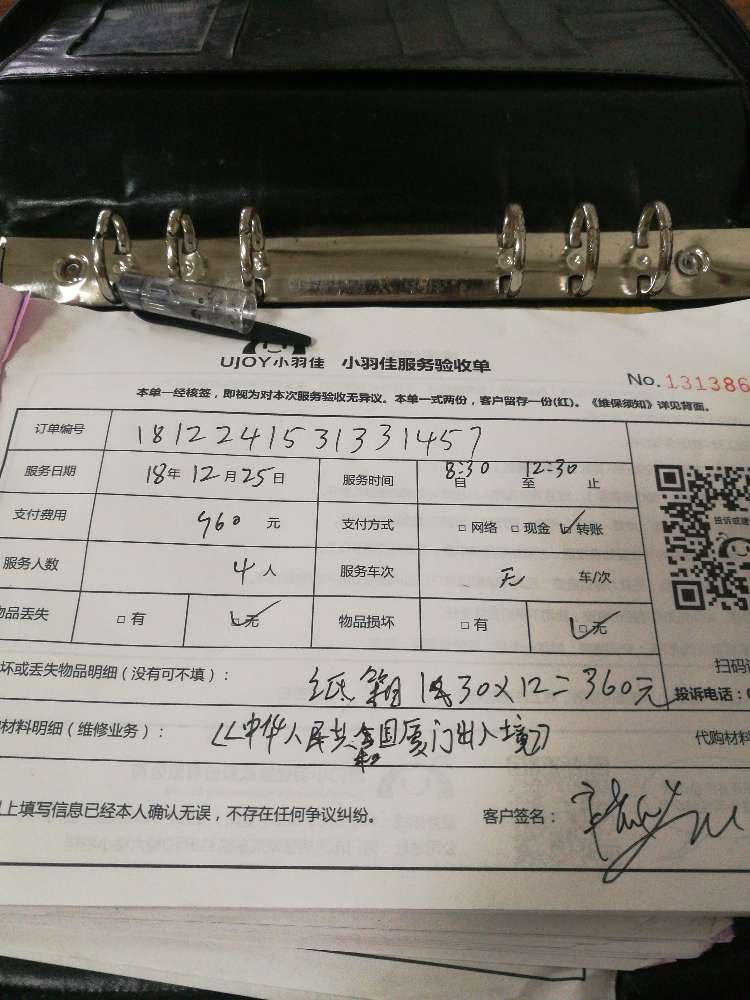 UJOY小羽佳 小羽佳服务验收单
No.131386
本单一经核签，即视为对本次服务验收无异议。本单一式两份，客户留存一份(红)。《维保须知》详见背面。
订单编号 1812241531331457
服务日期 18年12月25日 服务时间 8:30自 12:30至 止
支付费用 960元 支付方式 □网络 □现金 ☑转账
服务人数 4人 服务车次 无 车/次
物品丢失 □有 ☑无 物品损坏 □有 ☑无
坏或丢失物品明细（没有可不填）： 纸箱 30×12=360元
材料明细（维修业务）： 《中华人民共和国厦门出入境》 代购材料
上填写信息已经本人确认无误，不存在任何争议纠纷。 客户签名：
投诉或建
扫码
投诉电话：0